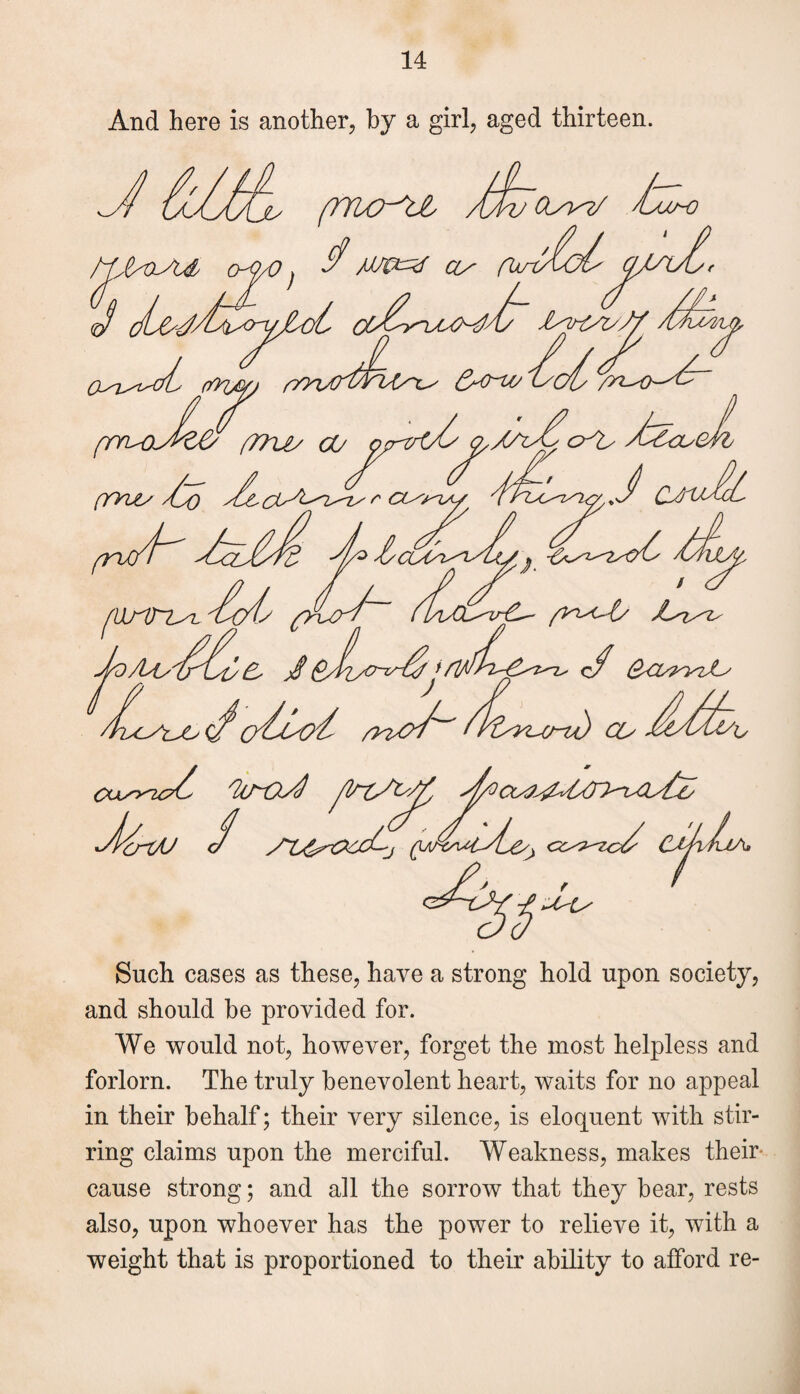 14
And here is another, by a girl, aged thirteen.
A little more than two
years ago, I was a wild girl.
I destroyed almost every thing
and my mother could not
make me a good girl or teach
me to learn any thing. I could
not talk plainly, and they
would not have me in
public School, when I came
here I did not know a letter
and was very passionate
Now I read, write, and cipher

Such cases as these, have a strong hold upon society,
and should be provided for.
We would not, however, forget the most helpless and
forlorn. The truly benevolent heart, waits for no appeal
in their behalf; their very silence, is eloquent with stir-
ring claims upon the merciful. Weakness, makes their
cause strong; and all the sorrow that they bear, rests
also, upon whoever has the power to relieve it, with a
weight that is proportioned to their ability to afford re-